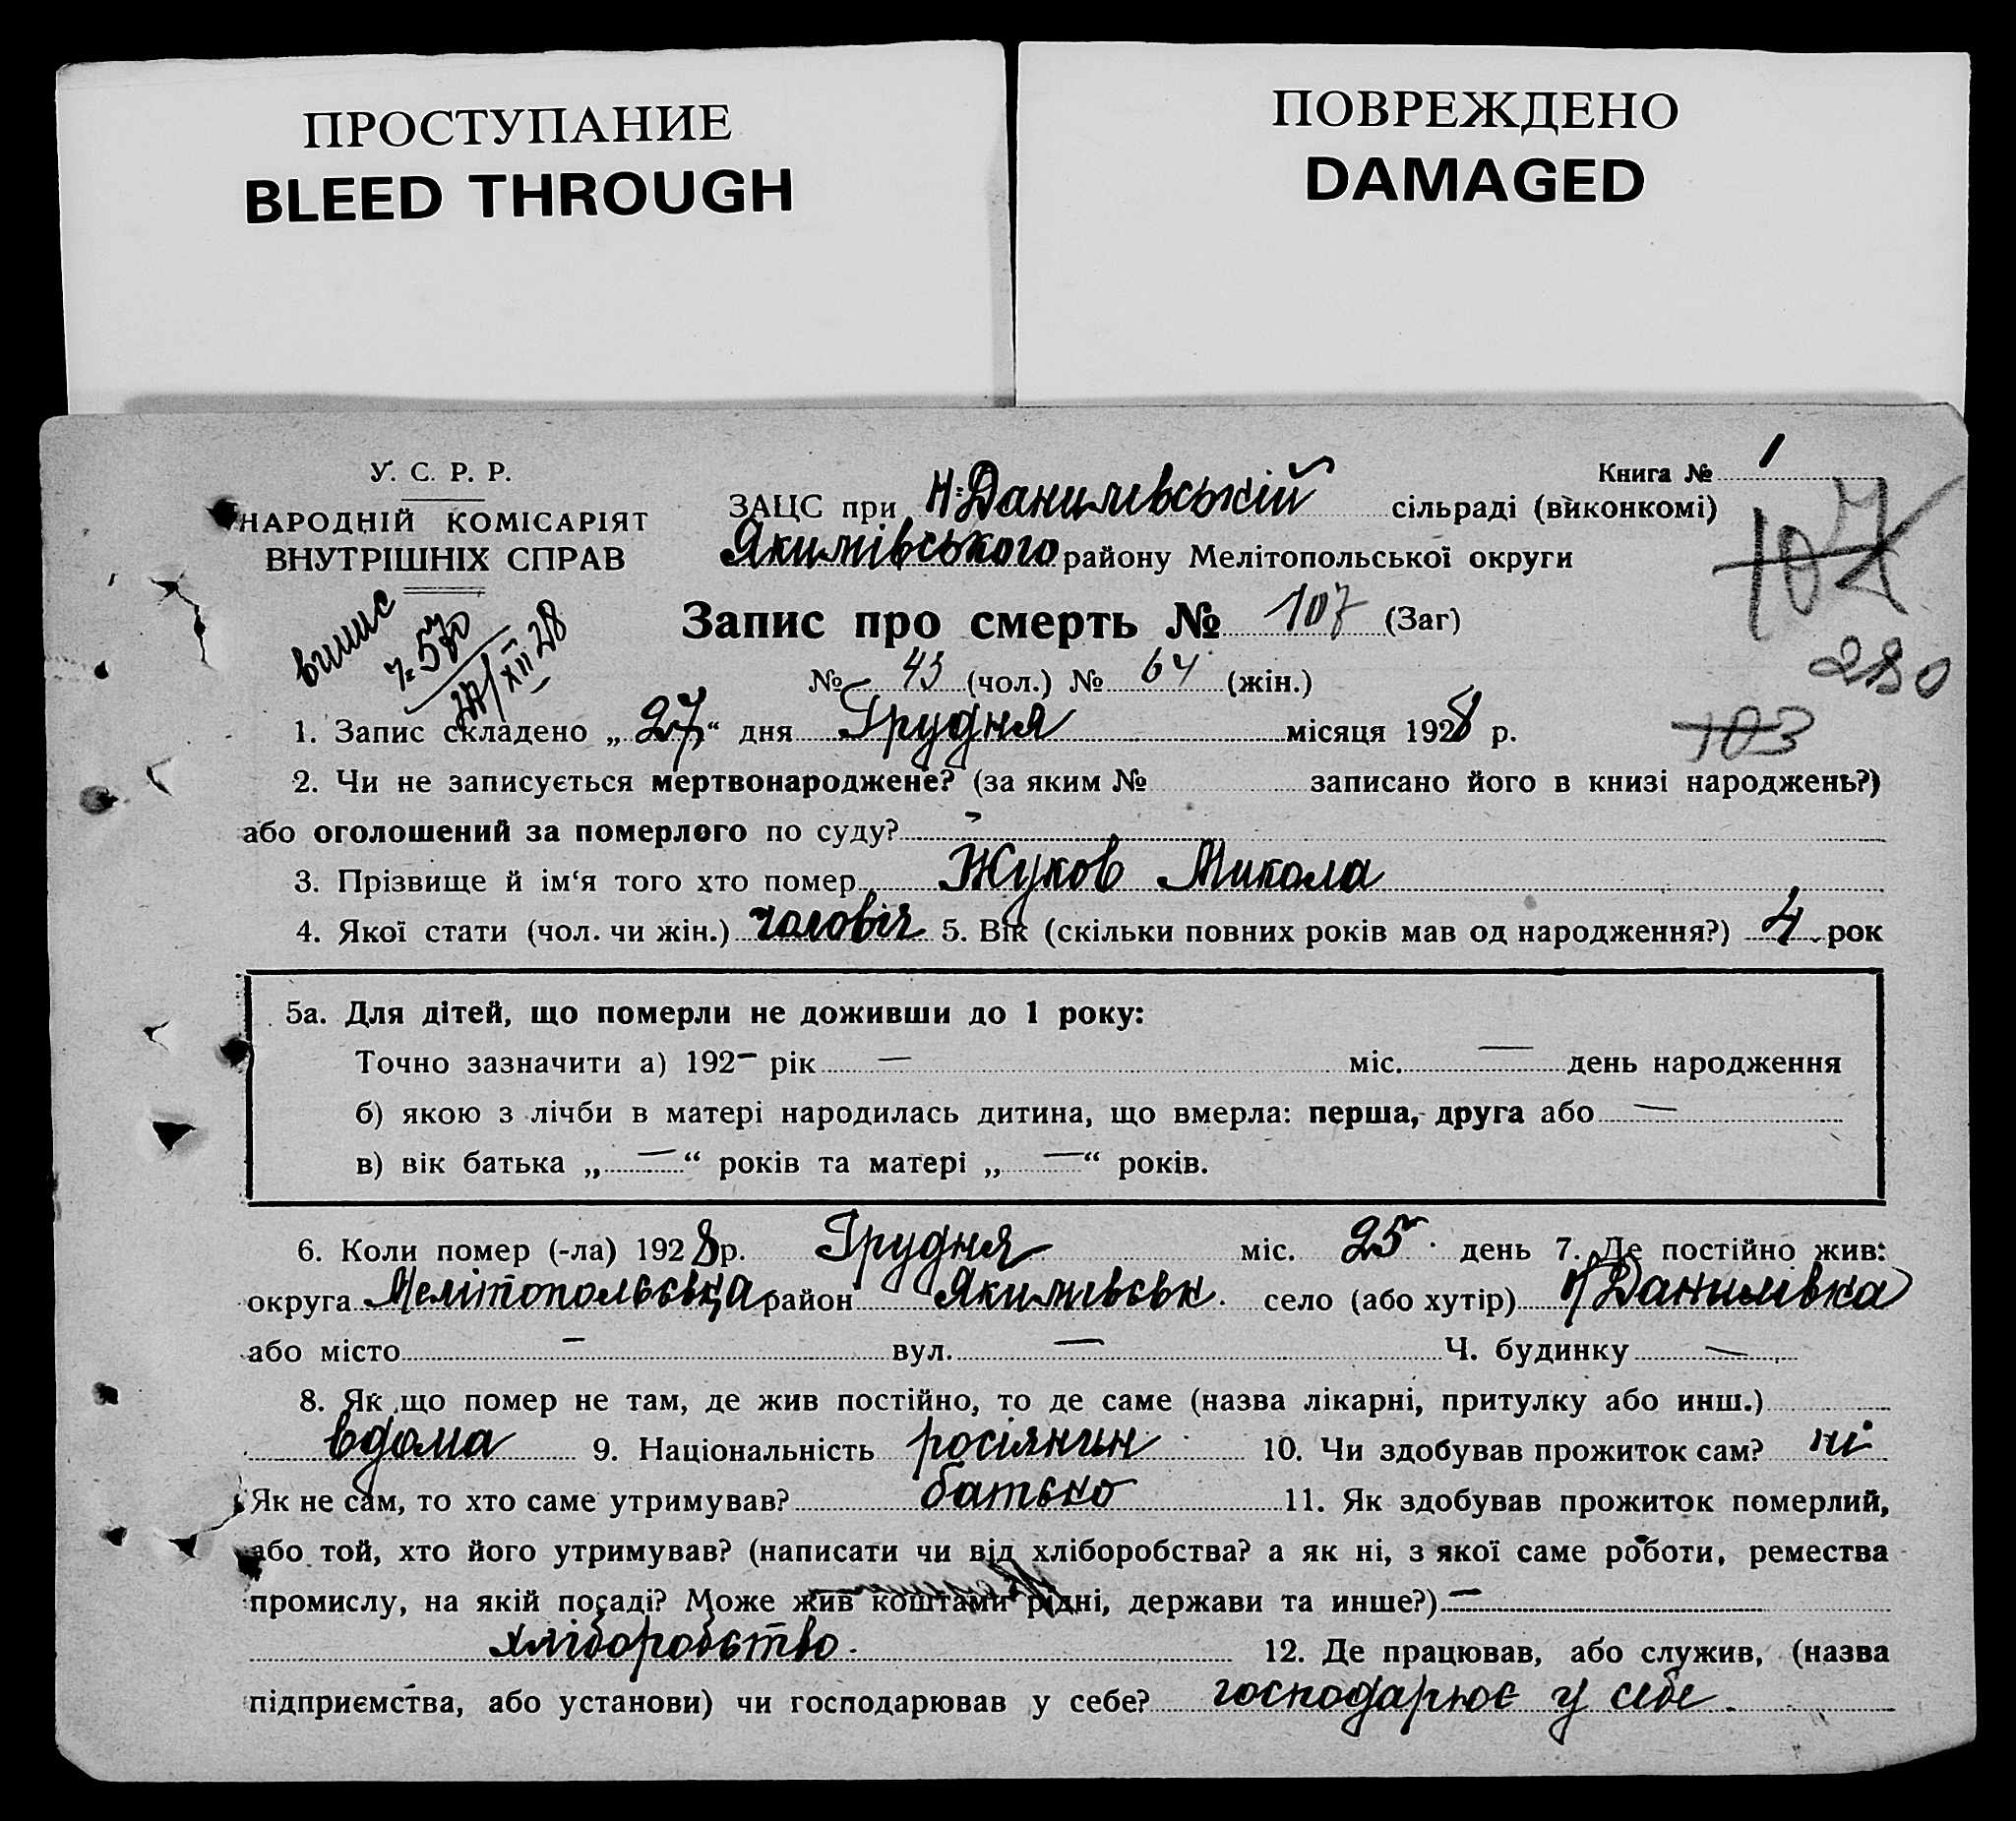 ПРОСТУПАНИЕ
BLEED THROUGH
ПОВРЕЖДЕНО
DAMAGED
У. С. Р. Р.
НАРОДНІЙ КОМІСАРІЯТ
ВНУТРІШНІХ СПРАВ
Книга № 1
ЗАЦС при Н-Данилівській сільраді (виконкомі)
Якимівського району Мелітопольської округи
107
280
103
Запис про смерть № 107 (Заг)
№ 43 (чол.) № 64 (жін.)
1. Запис складено „27“ дня Грудня місяця 1928 р.
2. Чи не записується мертвонароджене? (за яким № записано його в книзі народжень?)
або оголошений за померлого по суду?
3. Прізвище й ім‘я того хто помер Жуков Микола
4. Якої стати (чол. чи жін.) чоловіч 5. Вік (скільки повних років мав од народження?) 4 рок
5а. Для дітей, що померли не доживши до 1 року:
Точно зазначити а) 192– рік — міс. — день народження
б) якою з лічби в матері народилась дитина, що вмерла: перша, друга або —
в) вік батька „—“ років та матері „—“ років.
6. Коли помер (-ла) 1928 р. Грудня міс. 25 день 7. Де постійно жив:
округа Мелітопольська район Якимівськ. село (або хутір) Н Данилівка
або місто – вул. — Ч. будинку —
8. Як що помер не там, де жив постійно, то де саме (назва лікарні, притулку або инш.)
вдома 9. Національність росіянин 10. Чи здобував прожиток сам? ні
Як не сам, то хто саме утримував? батько 11. Як здобував прожиток померлий,
або той, хто його утримував? (написати чи від хліборобства? а як ні, з якої саме роботи, ремества
промислу, на якій посаді? Може жив коштами рідні, держави та инше?) —
хліборобство. 12. Де працював, або служив, (назва
підприємства, або установи) чи господарював у себе? господарює у себе